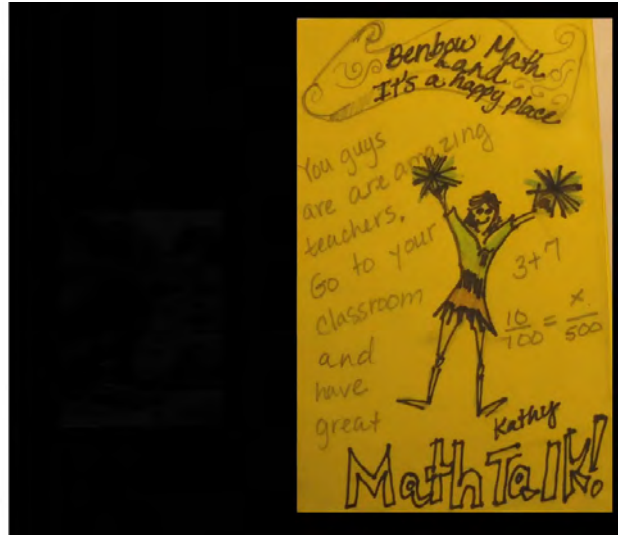 Benbow Math
Land
It's a happy place
You guys
are are amazing
teachers.
Go to your
classroom
and
have
great
3+7
10/100 = x/500
Kathy
Math Talk!